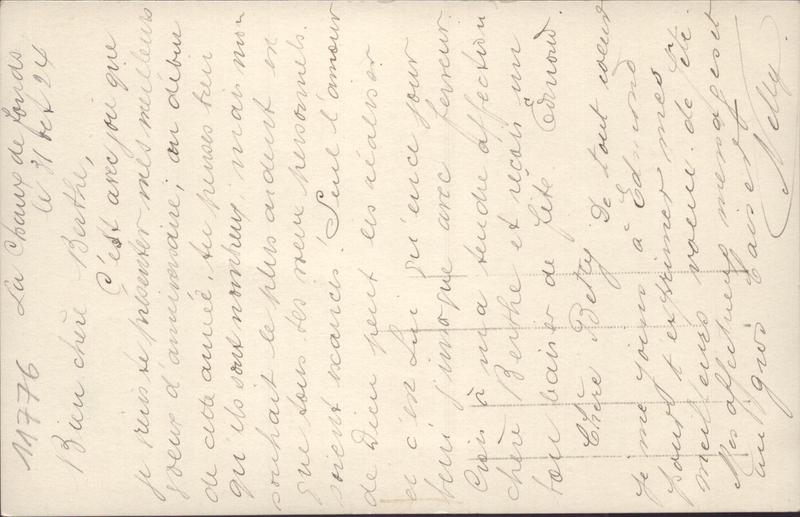 11776
La Chaux de Fonds
le 31 oct 24
Bien chère Berthe,
C'est avec joie que
je viens te présenter mes meilleurs
voeux d'anniversaire, au début
de cette année, tu penses bien
qu'ils sont nombreux, mais mon
souhait le plus ardent est
que tous tes voeux personnels
soient exaucés! Seul l'amour
de Dieu peut les réaliser
et c'est Lui qu'en ce jour
béni j'invoque avec ferveur.
Crois à ma tendre affection
chère Berthe et reçois un
bon baiser de fête Edmond.
Chère Betty De tout coeur
je me joins à Edmond
pour t'exprimer mes
meilleurs voeux de fête.
Mes affectueux messages et
un gros baiser
Nelly.